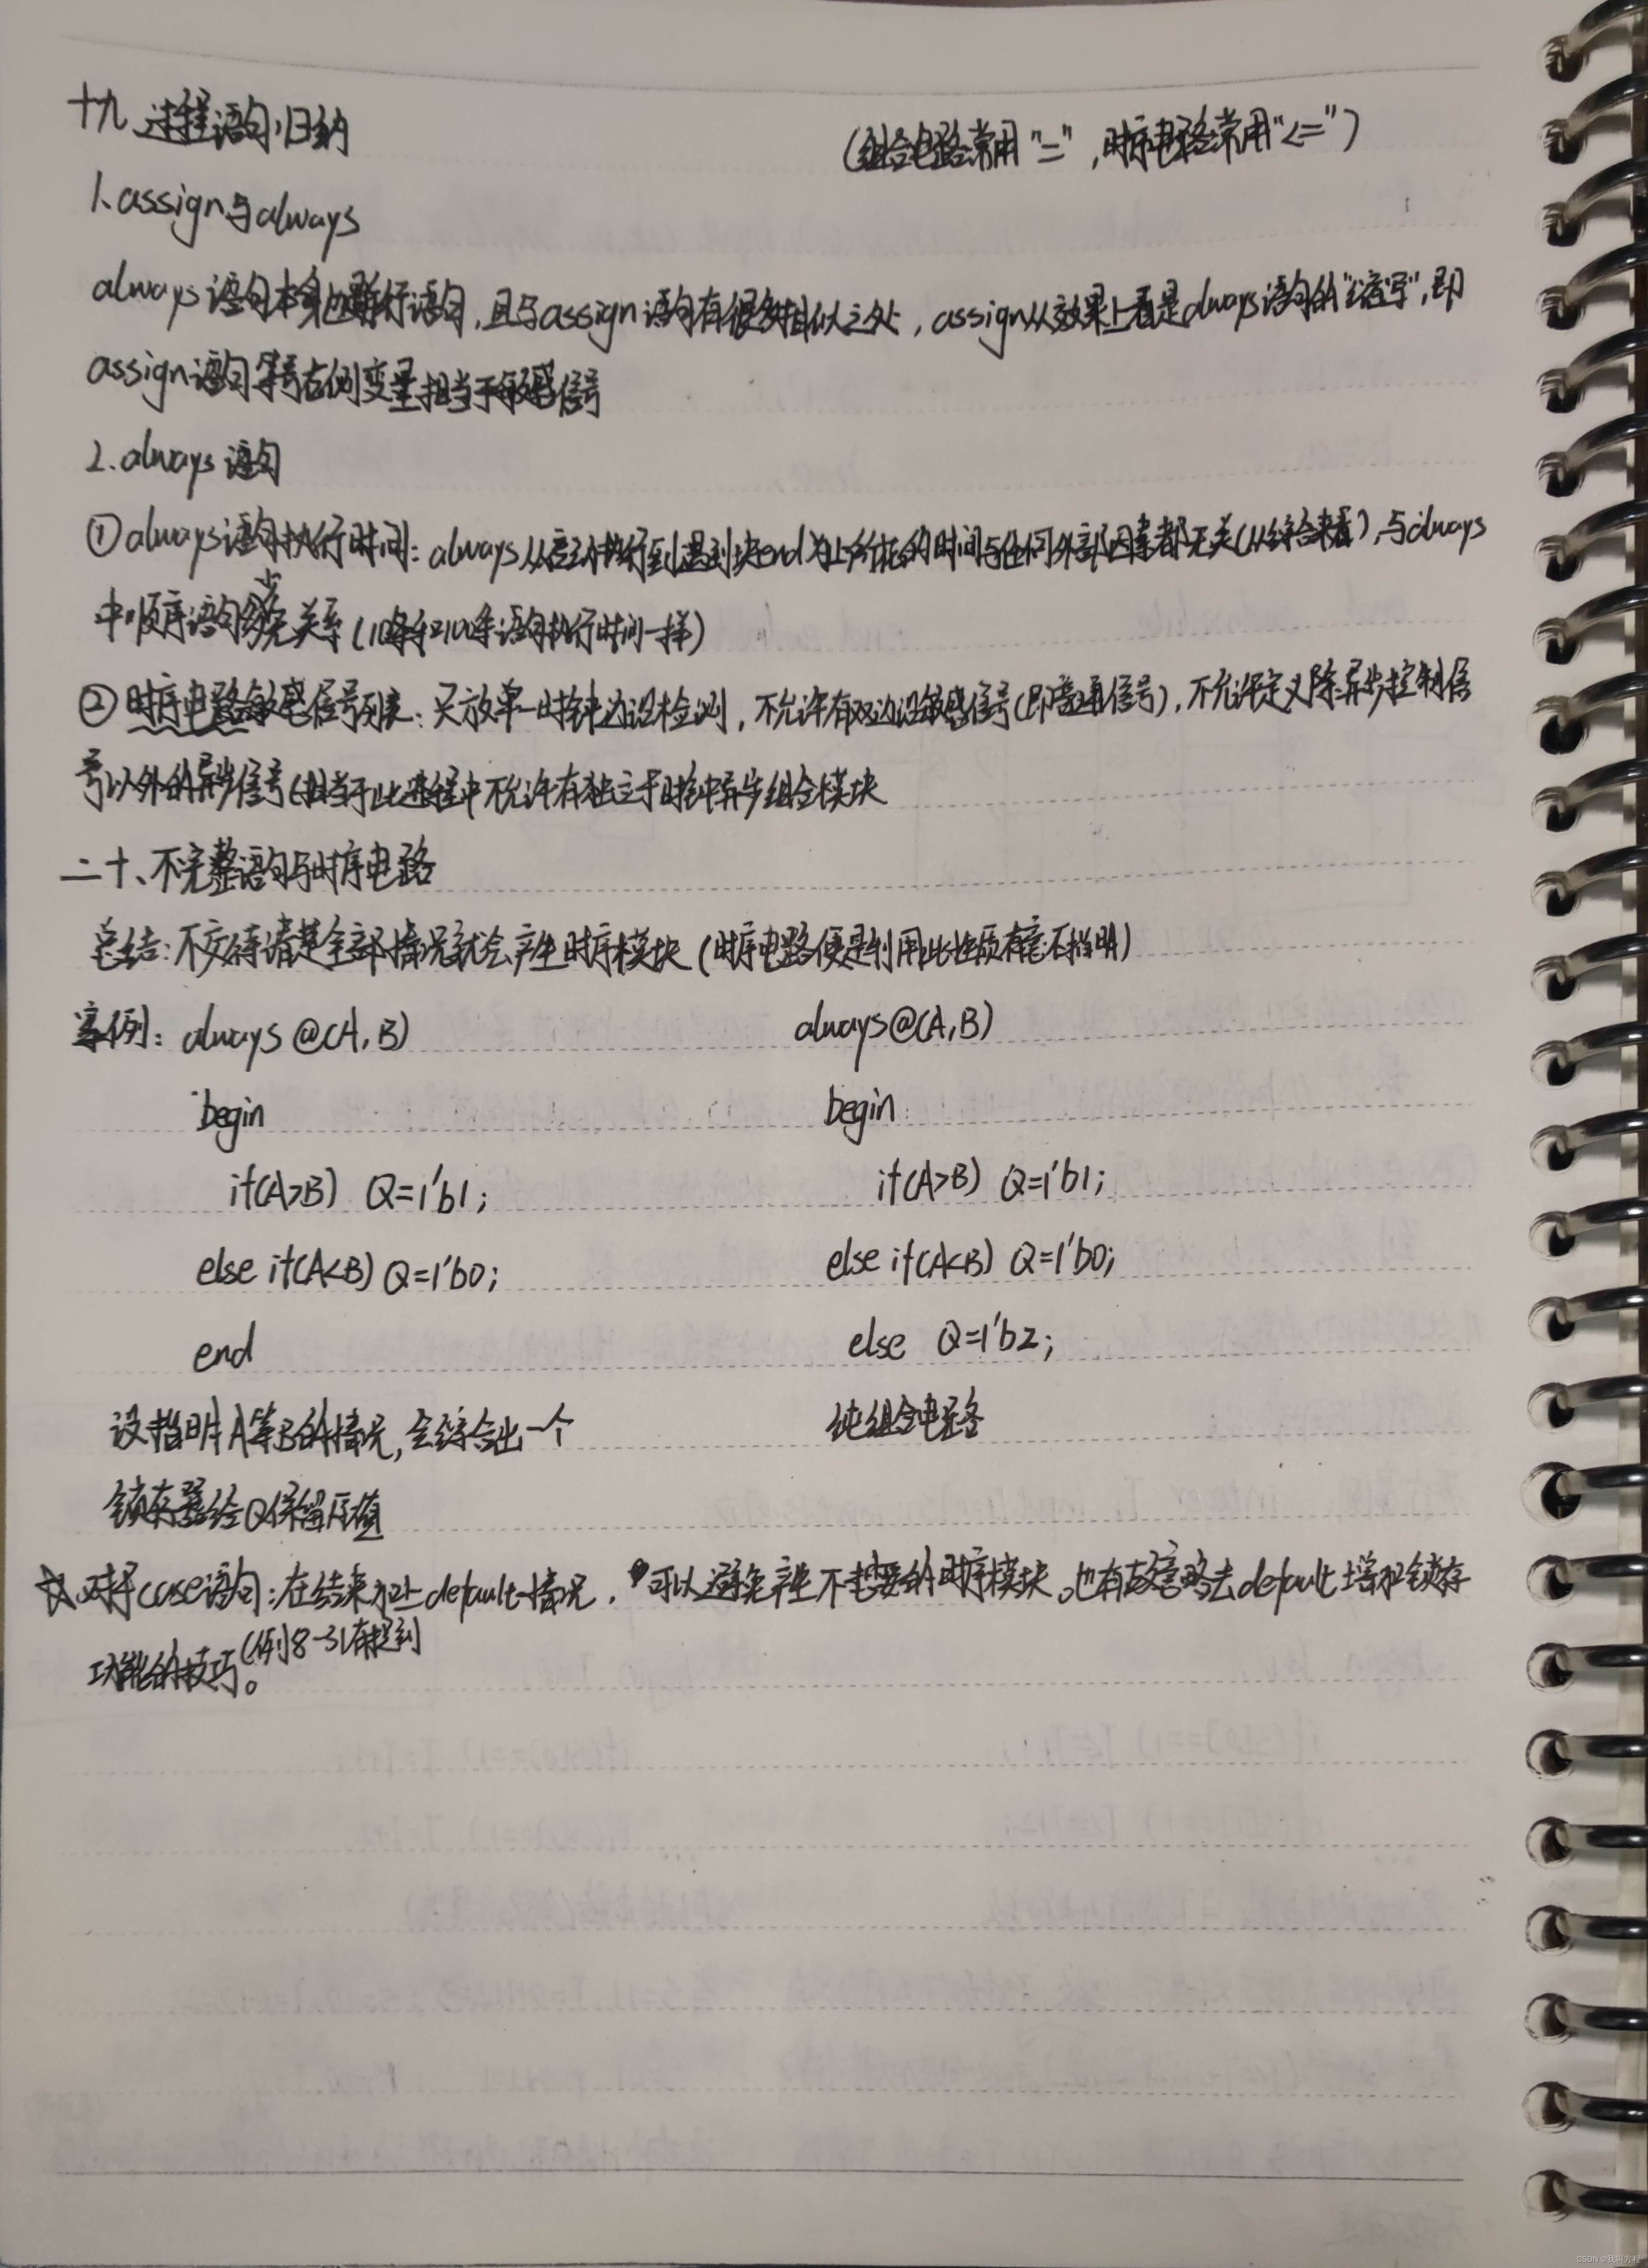 十九、过程语句归纳
（组合电路常用"="，时序电路常用"<="）
1.assign与always
always语句本身也是并行语句，且与assign语句有很多相似之处，assign从效果上看是always语句的"缩写"，即
assign语句等号右侧变量相当于敏感信号
2.always语句
①always语句执行时间：always从启动执行到遇到块end为止所花的时间与任何外部因素都无关（从综合来看），与always
中顺序语句多少无关系（10条和100条语句执行时间一样）
②时序电路敏感信号列表：只放单一时钟边沿检测，不允许有双边沿敏感信号（即普通信号），不允许定义除异步控制信
号以外的异步信号（相当于此进程中不允许有独立于时钟异步组合模块
二十、不完整语句与时序电路
总结：不交待清楚全部情况就会产生时序模块（时序电路便是利用此性质有意不指明）
案例：always @(A,B)
begin
if(A>B) Q=1'b1;
else if(A<B) Q=1'b0;
end
没指明A等B的情况，会综合出一个
锁存器给Q保留原值
always@(A,B)
begin
if(A>B) Q=1'b1;
else if(A<B) Q=1'b0;
else Q=1'bz;
纯组合电路
☆对于case语句：在结束加上default情况，可以避免产生不想要的时序模块。也有故意略去default增加锁存
功能的技巧（例8-31有提到
。
CSDN @我叫方程